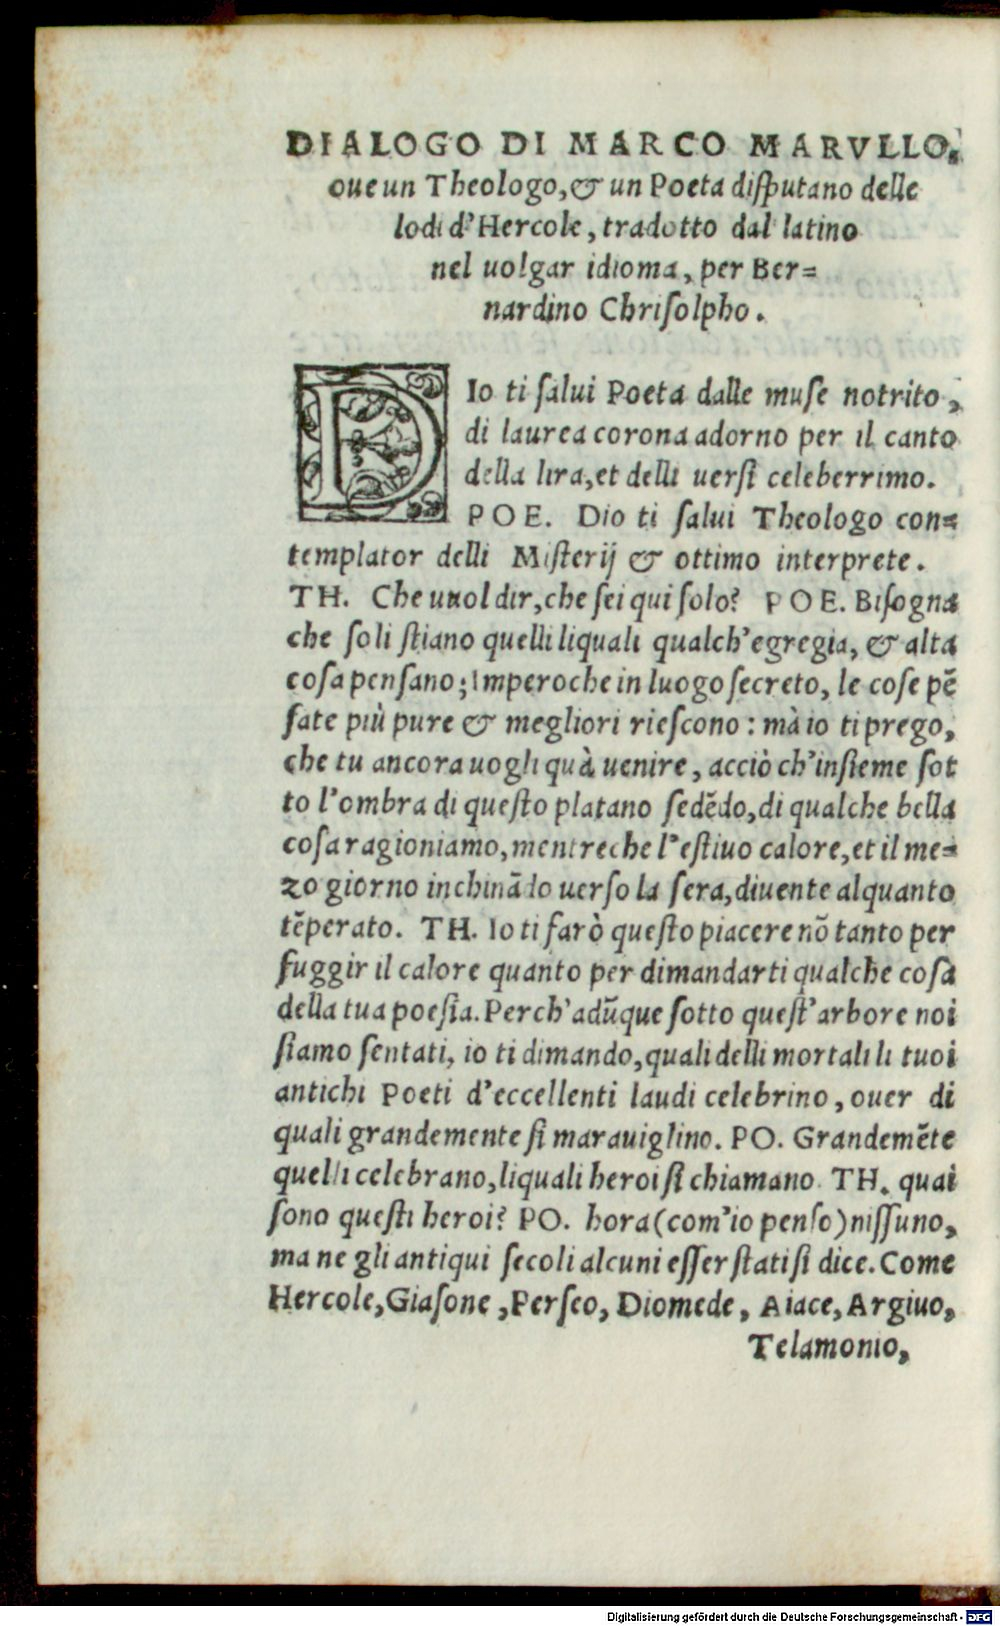 DIALOGO DI MARCO MARVLLO,
oue un Theologo, & un Poeta diſputano delle
lodi d'Hercole, tradotto dal latino
nel uolgar idioma, per Ber=
nardino Chriſolpho.
DIo ti ſalui Poeta dalle muſe notrito,
di laurea corona adorno per il canto
della lira, et delli uerſi celeberrimo.
POE. Dio ti ſalui Theologo con=
templator delli Miſterij & ottimo interprete.
TH. Che uuol dir, che ſei qui ſolo? POE. Biſogna
che ſoli ſtiano quelli liquali qualch'egregia, & alta
coſa penſano; Imperoche in luogo ſecreto, le coſe pē
ſate più pure & megliori rieſcono: mà io ti prego,
che tu ancora uogli quà uenire, acciò ch'inſieme ſot
to l'ombra di queſto platano ſedēdo, di qualche bella
coſa ragioniamo, mentreche l'eſtiuo calore, et il me=
zo giorno inchināđo uerſo la ſera, diuente alquanto
tēperato. TH. Io ti farò queſto piacere nō tanto per
fuggir il calore quanto per dimandarti qualche coſa
della tua poeſia. Perch'adūque ſotto queſt'arbore noi
ſiamo ſentati, io ti dimando, quali delli mortali li tuoi
antichi Poeti d'eccellenti laudi celebrino, ouer di
quali grandemente ſi marauiglino. PO. Grandemēte
quelli celebrano, liquali heroi ſi chiamano. TH. quai
ſono queſti heroi? PO. hora (com'io penſo) niſſuno,
ma ne gli antiqui ſecoli alcuni eſſer ſtati ſi dice. Come
Hercole, Giaſone, Perſeo, Diomede, Aiace, Argiuo,
Telamonio,
Digitalisierung gefördert durch die Deutsche Forschungsgemeinschaft - DFG